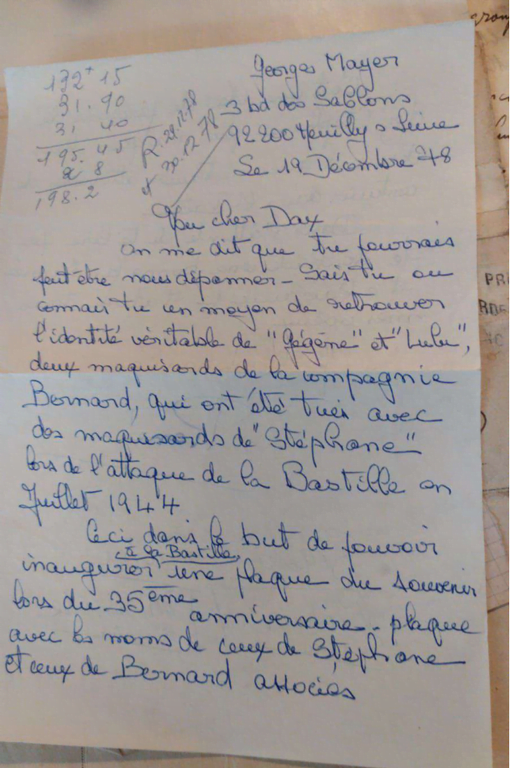 172+15
31.90
31 40
195.45
R. 29.12.78
et 30.12.78
198.2
Georges Mayer
3 bd des Sablons
92200 Neuilly s Seine
Le 19 Décembre 78
Mon cher Dax
on me dit que tu pourrais
peut être nous dépanner - Sais tu ou
connais tu un moyen de retrouver
l'identité véritable de "Gégène" et "Lulu",
deux maquisards de la compagnie
Bernard, qui ont été tués avec
des maquisards de "Stéphane"
lors de l'attaque de la Bastille en
Juillet 1944
Ceci dans le but de pouvoir
inaugurer à la Bastille, une plaque du souvenir
lors du 35ème anniversaire - plaque
avec les noms de ceux de Stéphane
et ceux de Bernard associés
PRI